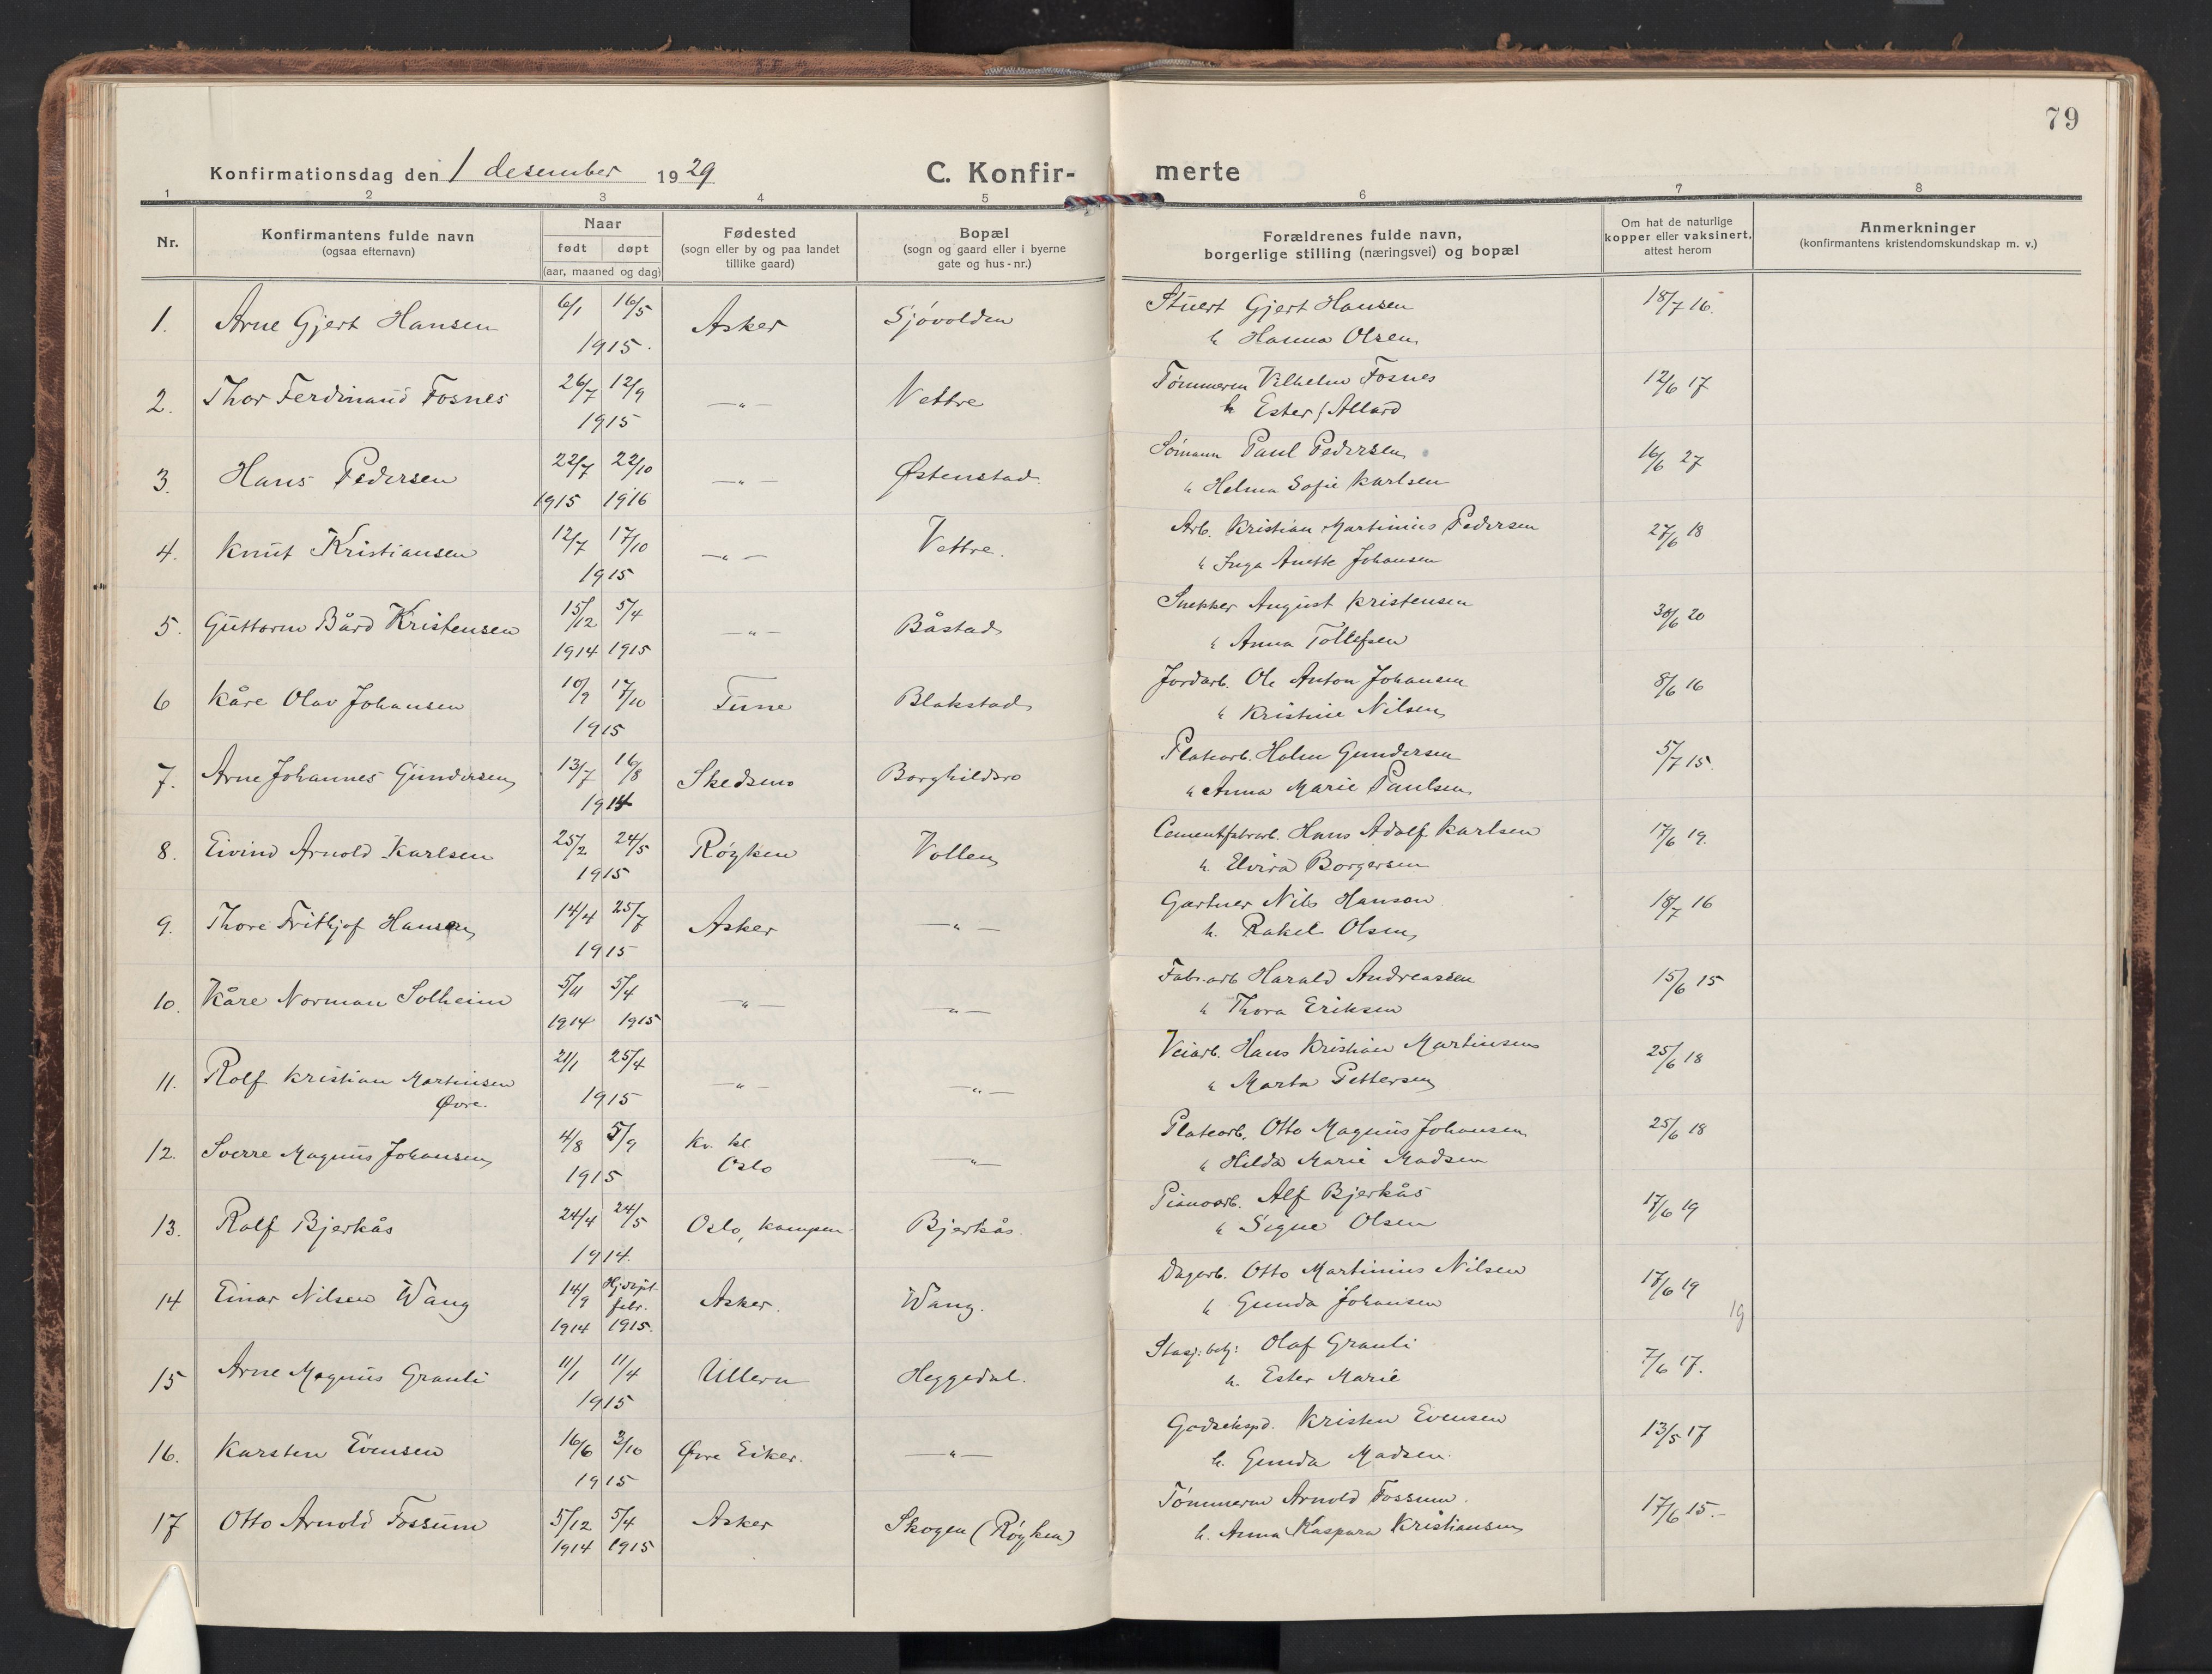 79
Konfirmationsdag den 1 desember 1929
C. Konfir-
merte
1 2 3 4 5 6 7 8
Nr.
Konfirmantens fulde navn
(ogsaa efternavn)
Naar
født døpt
(aar, maaned og dag)
Fødested
(sogn eller by og paa landet
tillike gaard)
Bopæl
(sogn og gaard eller i byerne
gate og hus-nr.)
Forældrenes fulde navn,
borgerlige stilling (næringsvei) og bopæl
Om hat de naturlige
kopper eller vaksinert,
attest herom
Anmerkninger
(konfirmantens kristendomskundskap m. v.)
1. Arne Gjert Hansen 6/1 16/5 Asker Sjøvolden Stuert Gjert Hansen 18/7 16.
1915. h Hanna Olsen
2. Thor Ferdinand Fosnes 26/7 12/9 —"— Vettre Tømmerm Vilhelm Fosnes 12/6 17
1915 h Ester f Allard
3. Hans Pedersen 22/7 22/10 —"— Østenstad Sømann Paul Pedersen 16/6 27
1915 1916 " Helma Sofie Karlsen
4. Knut Kristiansen 12/7 17/10 —"— Vettre. Arb. Kristian Martinius Pedersen 27/6 18
1915 " Inga Anette Johansen
5. Guttorm Bård Kristensen 15/12 5/4 —"— Båstad Snekker August Kristensen 30/6 20
1914 1915 " Anna Tollefsen
6 Kåre Olav Johansen 10/9 17/10 Tune Blakstad Jordarb. Ole Anton Johansen 8/6 16
1915 " Kristine Nilsen
7. Arne Johannes Gundersen 13/7 16/8 Skedsmo Borghildsro Platearb. Holm Gundersen 5/7 15.
1914 " Anna Marie Paulsen
8. Eivind Arnold Karlsen 25/2 24/5 Røyken Vollen Cementfabrarb. Hans Adolf Karlsen 17/6 19.
1915 h. Elvira Borgersen
9. Thore Frithjof Hansen 14/4 25/7 Asker —"— Gartner Nils Hanson 18/7 16
1915 h. Rakel Olsen
10. Kåre Norman Solheim 5/11 5/4 —"— —"— Fabr.arb Harald Andreassen 15/6 15
1914 1915 " Thora Eriksen
11. Rolf Kristian Martinsen 21/1 25/4 —"— —"— Veiarb. Hans Kristian Martinsen 25/6 18
Øvre. 1915 " Marta Pettersen
12. Sverre Magnus Johansen 4/8 5/9 Kv. kl. —"— Platearb. Otto Magnus Johansen 25/6 18
1915 Oslo " Hilda Marie Madsen
13. Rolf Bjerkås 24/4 24/5 Oslo, Kampen Bjerkås. Pianoarb. Alf Bjerkås 17/6 19
1914. " Signe Olsen
14 Einar Nilsen Wang 14/9 Hj.døpt Asker. Wang. Dagarb. Otto Martinius Nilsen 17/6 19
febr.
1914 1915. h Gunda Johansen 19
15 Arne Magnus Granli 11/1 11/4 Ullern Heggedal. Stasj: betj: Olaf Granli 7/6 17.
1915 h. Ester Marie
16. Karsten Evensen 16/6 3/10 Øvre Eiker. —"— Godseksped. Kristen Evensen 13/5 17
1915 h. Gunda Madsen.
17 Otto Arnold Fossum 5/12 5/4 Asker Skogen (Røyken) Tømmerm Arnold Fossum. 17/6 15.-
1914 1915 h. Anna Kaspara Kristiansen